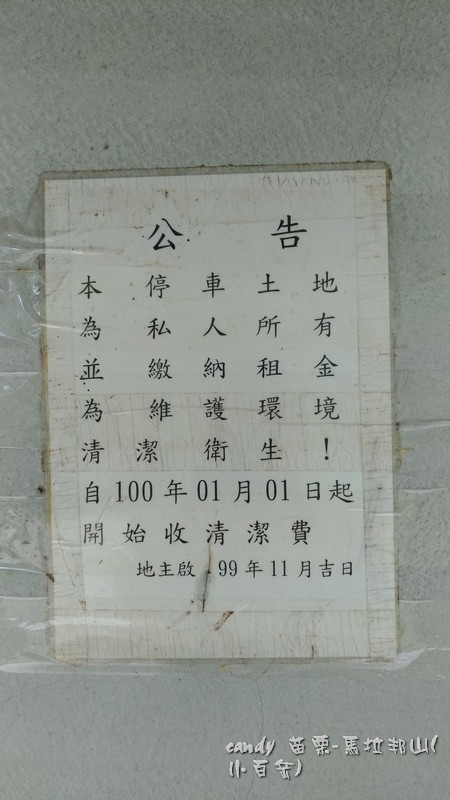 公告
本停車土地
為私人所有
並繳納租金
為維護環境
清潔衛生!
自100年01月01日起
開始收清潔費
地主啟.99年11月吉日
candy 苗栗-馬拉邦山(
小百岳)